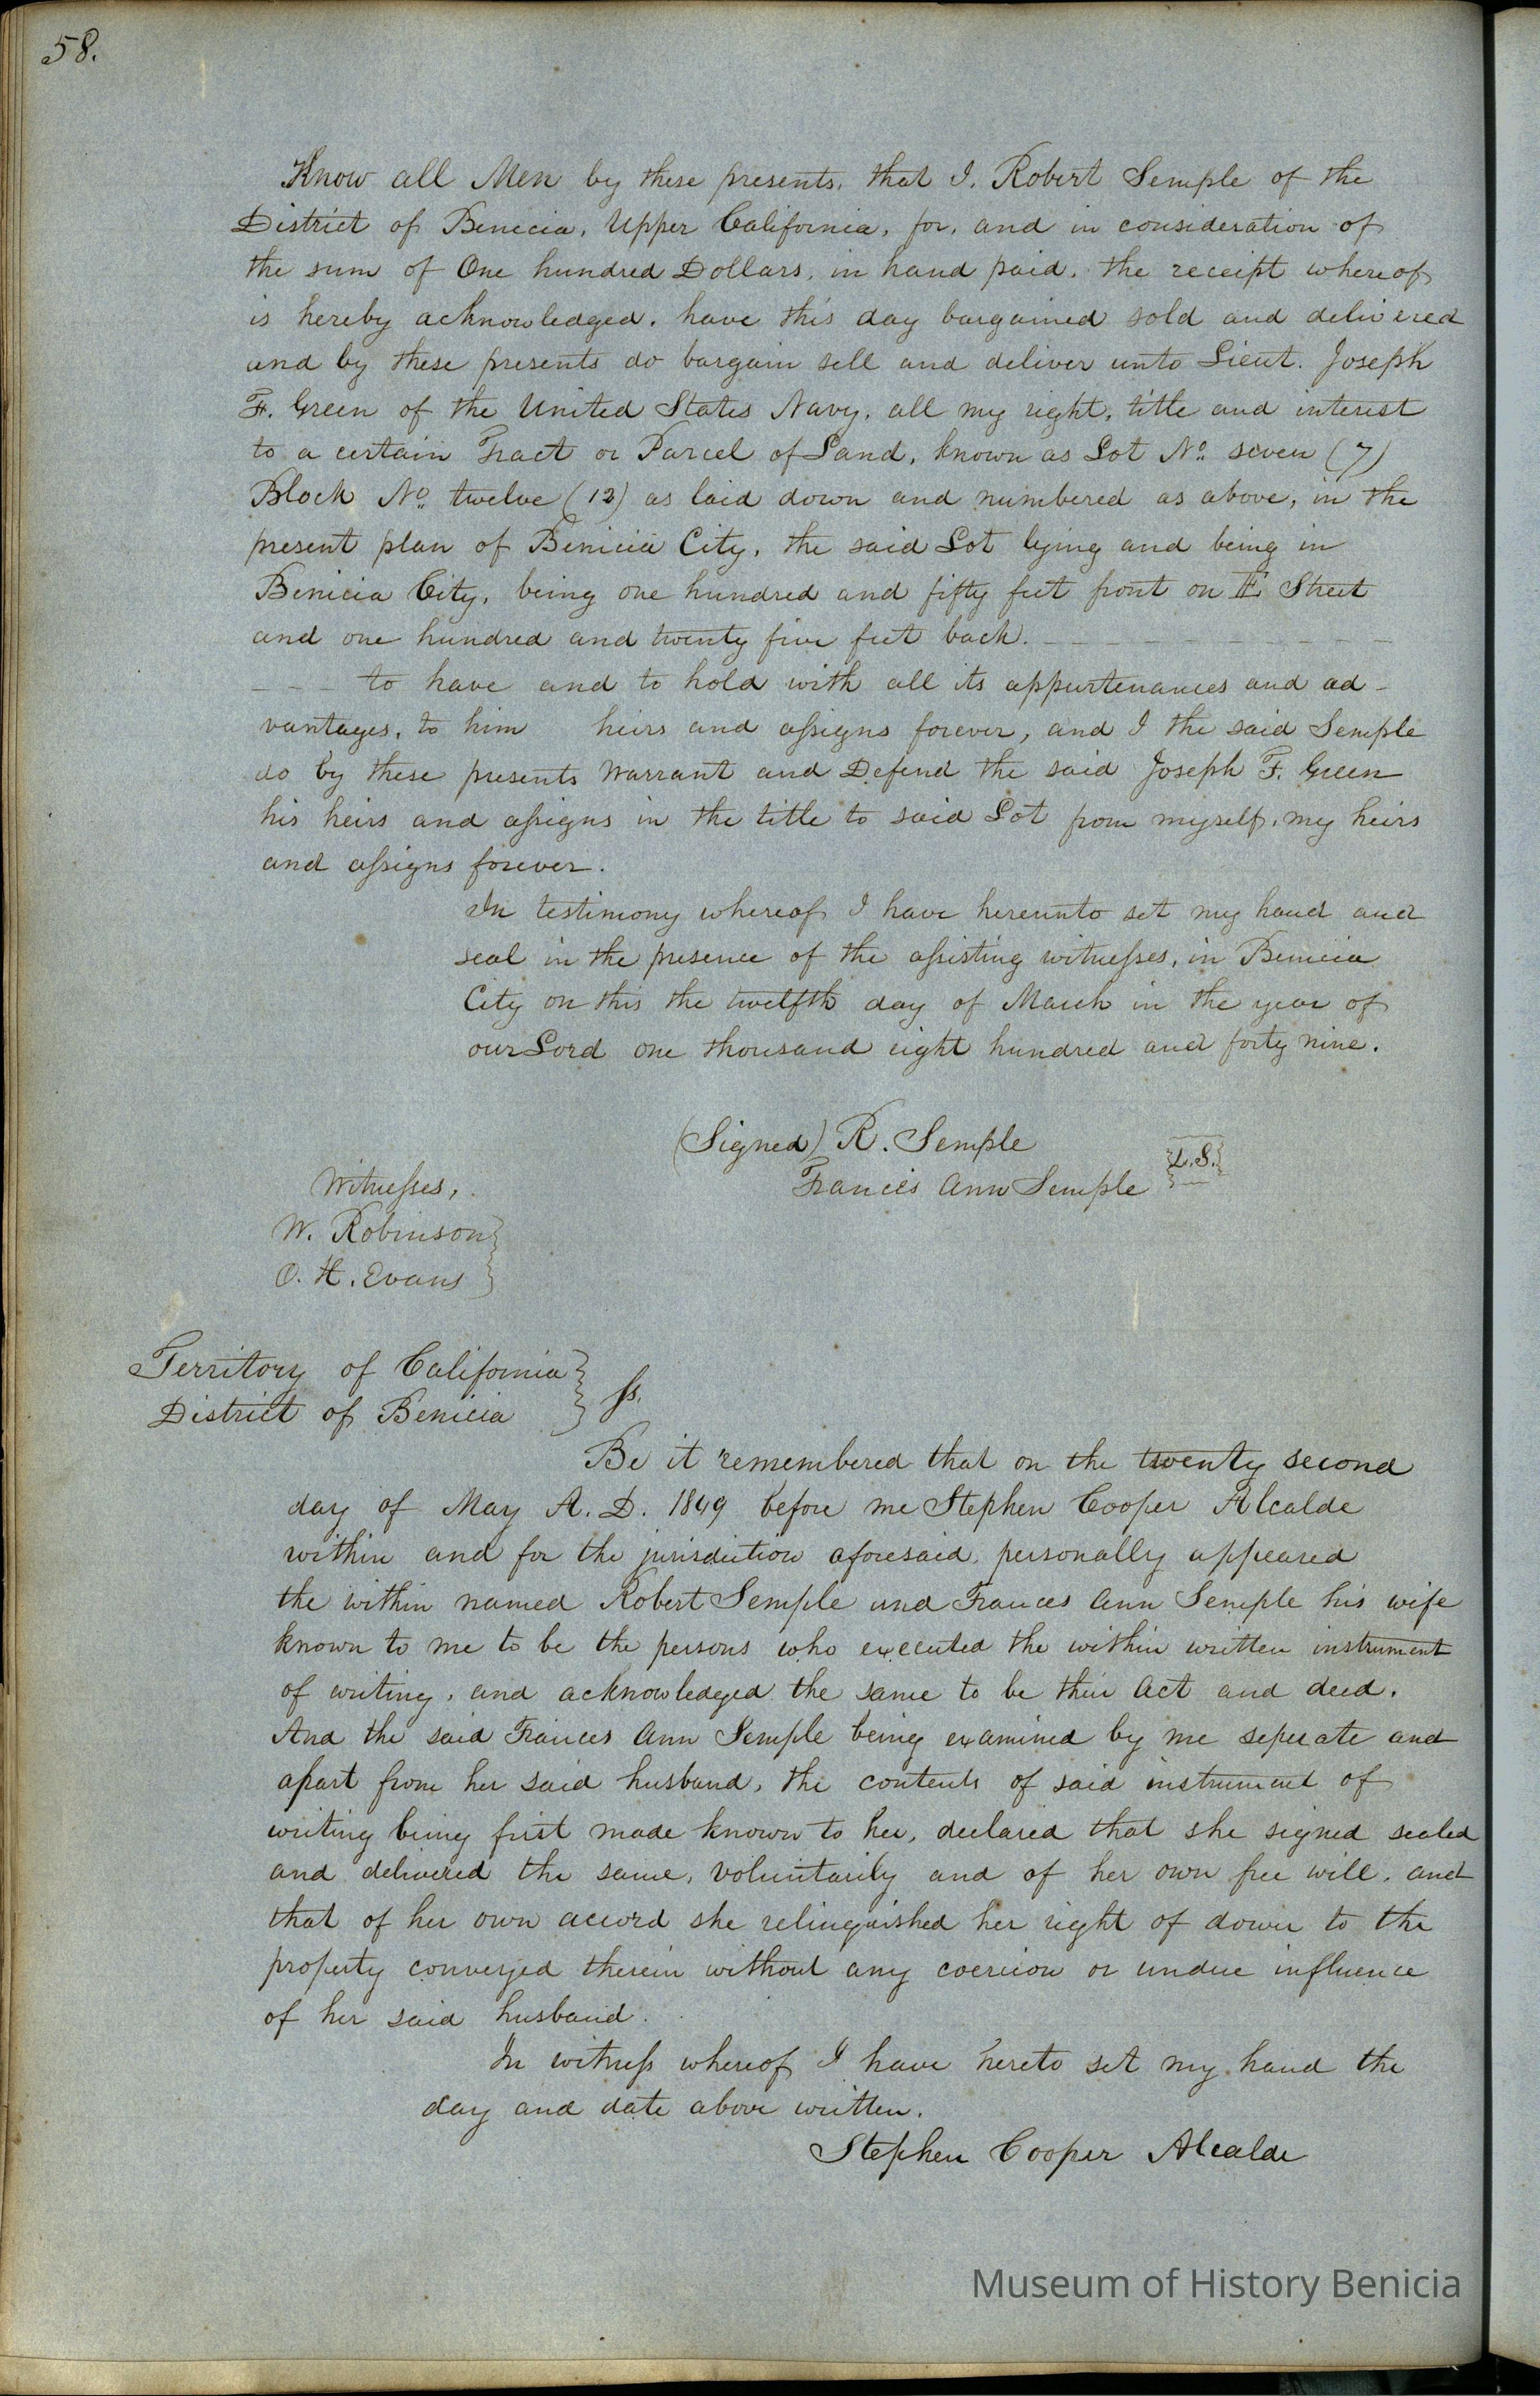 58.
Know all Men by these presents, that I, Robert Semple of the
District of Benicia, Upper California, for, and in consideration of
the sum of One hundred Dollars, in hand paid, the receipt whereof
is hereby acknowledged, have this day bargained sold and delivered
and by these presents do bargain sell and deliver unto Lieut. Joseph
F. Green of the United States Navy, all my right, title and interest
to a certain Tract or Parcel of Land, known as Lot No. seven (7)
Block No. twelve (12) as laid down and numbered as above, in the
present plan of Benicia City, the said Lot lying and being in
Benicia City, being one hundred and fifty feet front on E Street
and one hundred and twenty five feet back. — — — — — — — —
— — — to have and to hold with all its appurtenances and ad-
vantages, to him heirs and assigns forever, and I the said Semple
do by these presents Warrant and Defend the said Joseph F. Green
his heirs and assigns in the title to said Lot from myself, my heirs
and assigns forever.
In testimony whereof I have hereunto set my hand and
seal in the presence of the assisting witnesses, in Benicia
City on this the twelfth day of March in the year of
our Lord one thousand eight hundred and forty nine.
(Signed) R. Semple
Francis Ann Semple {L.S.}
Witnesses,
W. Robinson }
O. H. Evans }
Territory of California }
District of Benicia } ss.
Be it remembered that on the twenty second
day of May A. D. 1849 before me Stephen Cooper Alcalde
within and for the jurisdiction aforesaid, personally appeared
the within named Robert Semple and Frances Ann Semple his wife
known to me to be the persons who executed the within written instrument
of writing, and acknowledged the same to be their act and deed.
And the said Frances Ann Semple being examined by me seperate and
apart from her said husband, the contents of said instrument of
writing being first made known to her, declared that she signed sealed
and delivered the same, voluntarily and of her own free will, and
that of her own accord she relinquished her right of dower to the
property conveyed therein without any coercion or undue influence
of her said husband.
In witness whereof I have hereto set my hand the
day and date above written.
Stephen Cooper Alcalde
Museum of History Benicia